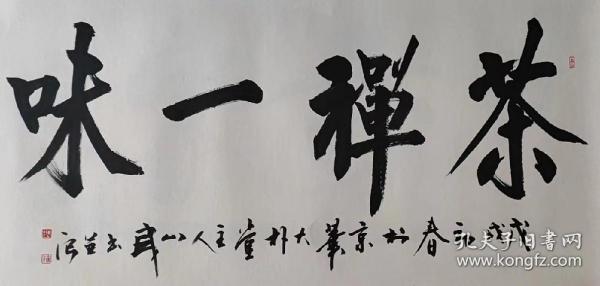 茶禪一味
戊戌初春於京華大朴堂主人山
孔夫子旧書网
www.kongfz.com